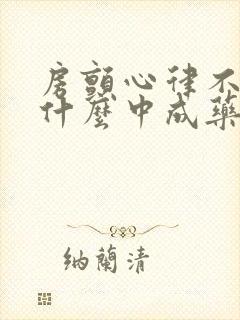 房顫心律不
什麼中成藥
納蘭清